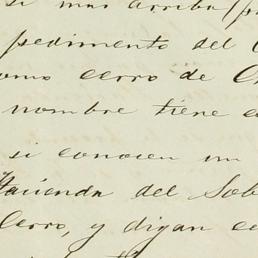 si mas arriba
pedimento del
como cerro de
nombre tiene
si conocen un
Hacienda del Sob
Cerro, y digan